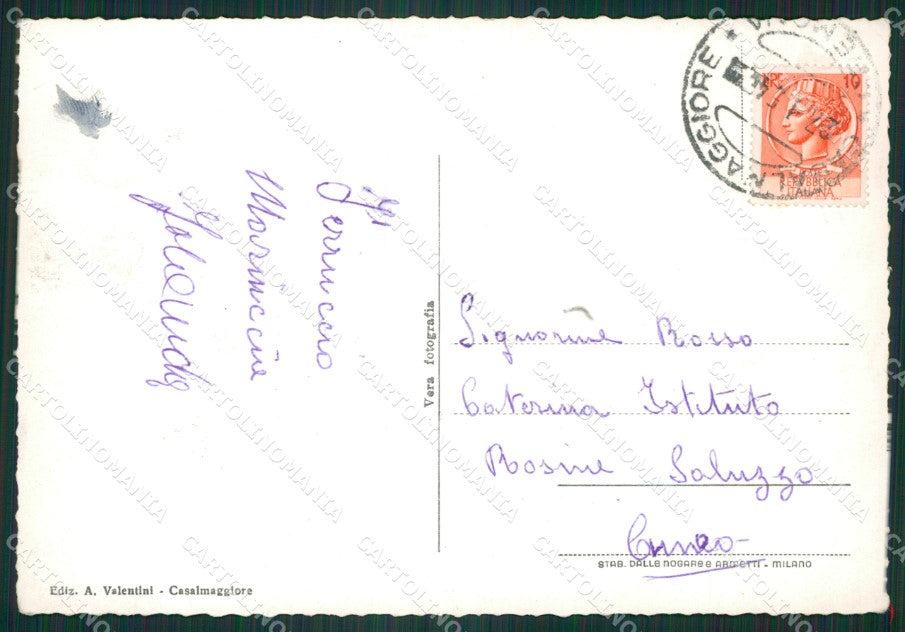 Ferruccio
Marinccine
Vera fotografia
Signorine Rosso
Caterina Istituto
Rosine Saluzzo
Cuneo
STAB. DALLE NOGARE e ARMETTI - MILANO
Ediz. A. Valentini - Casalmaggiore
CASALMAGGIORE
10
REPUBBLICA
ITALIANA
CARTOLINOMANIA